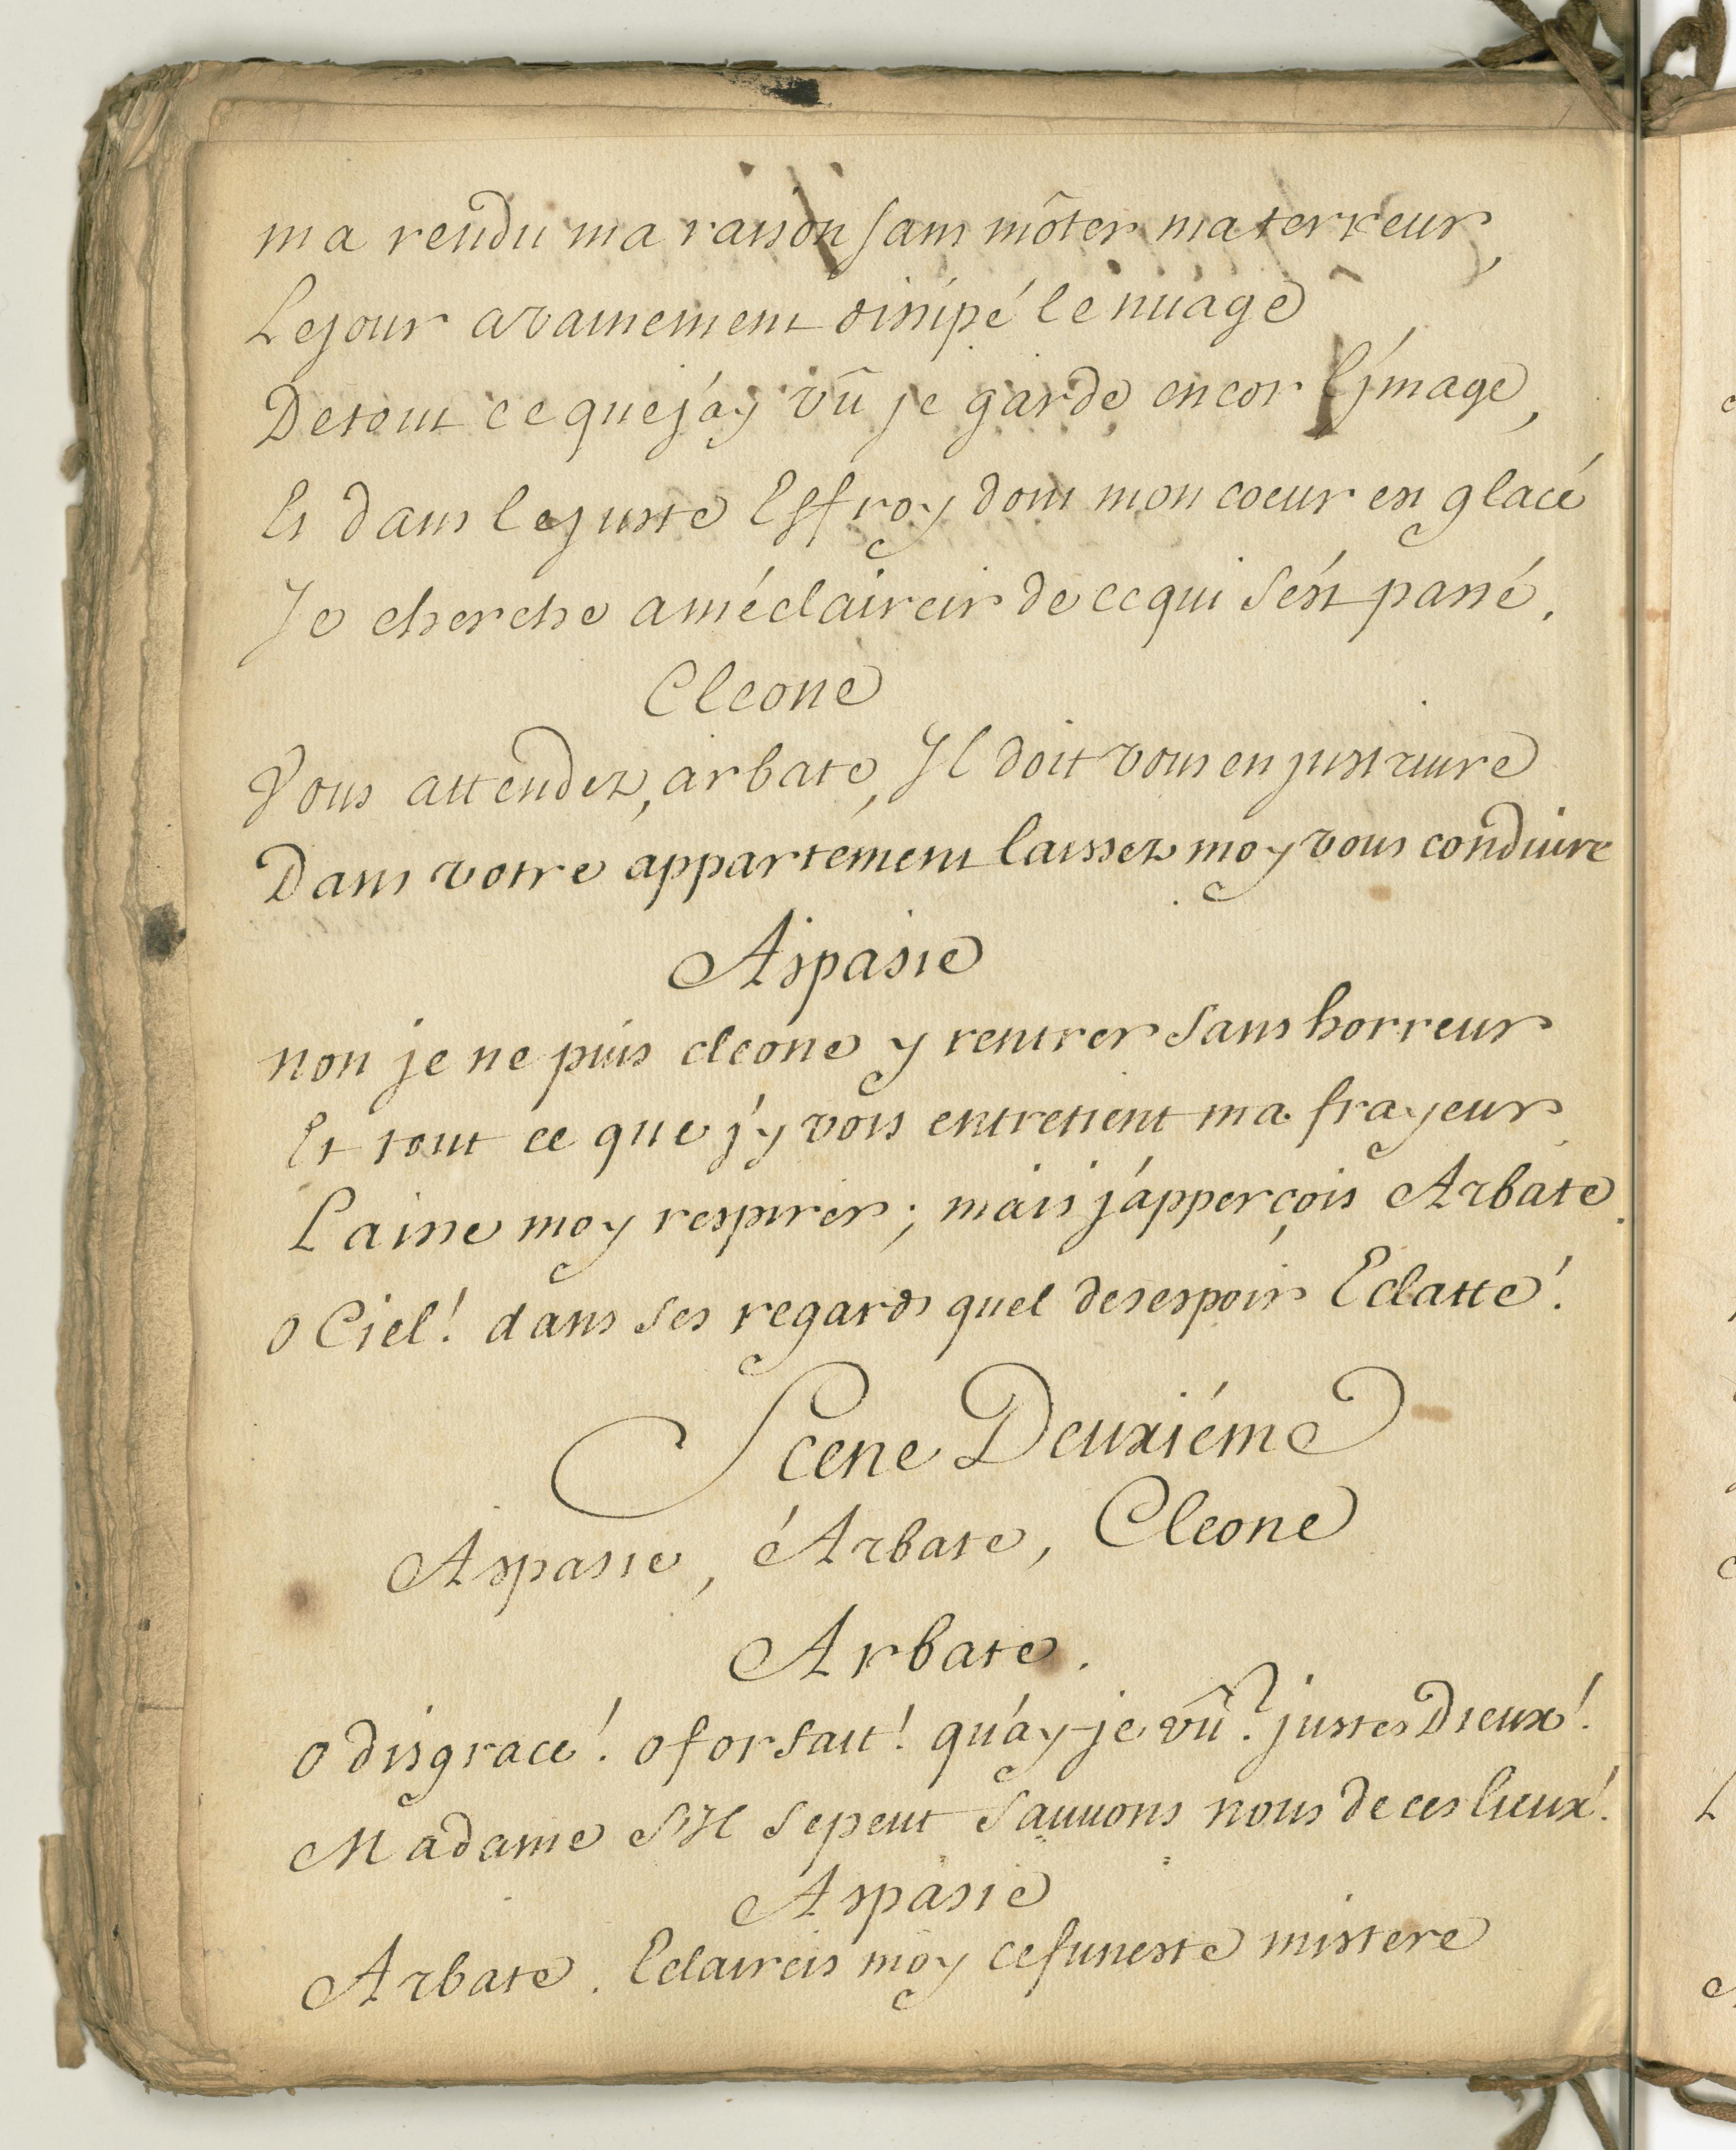 ma rendu ma raison sans môter ma terreur,
Le jour a vainement dissipé le nuage
De tout ce que j'ay vû je garde encor l'jmage,
Et dans le juste Effroy dont mon coeur est glacé
Je cherche a m'éclaircir de ce qui s'ést passé.
Cleone
Vous attendez, arbate, Jl doit vous en justruire
Dans votre appartement laissez moy vous conduire
Aspasie
non je ne puis cleone y rentrer sans horreur
Et tout ce que j'y vois entretient ma frayeur
Laisse moy respirer; mais j'apperçois Arbate.
O Ciel! dans ses regards quel desespoir Eclatte!
Scene Deuxiéme
Aspasie, Arbate, Cleone
Arbate.
O disgrace! o forfait! qu'ay-je vû? justes Dieux!
Madame S'Jl se peut sauuons nous de ces lieux!
Aspasie
Arbate. Eclaircis moy ce funeste mistere